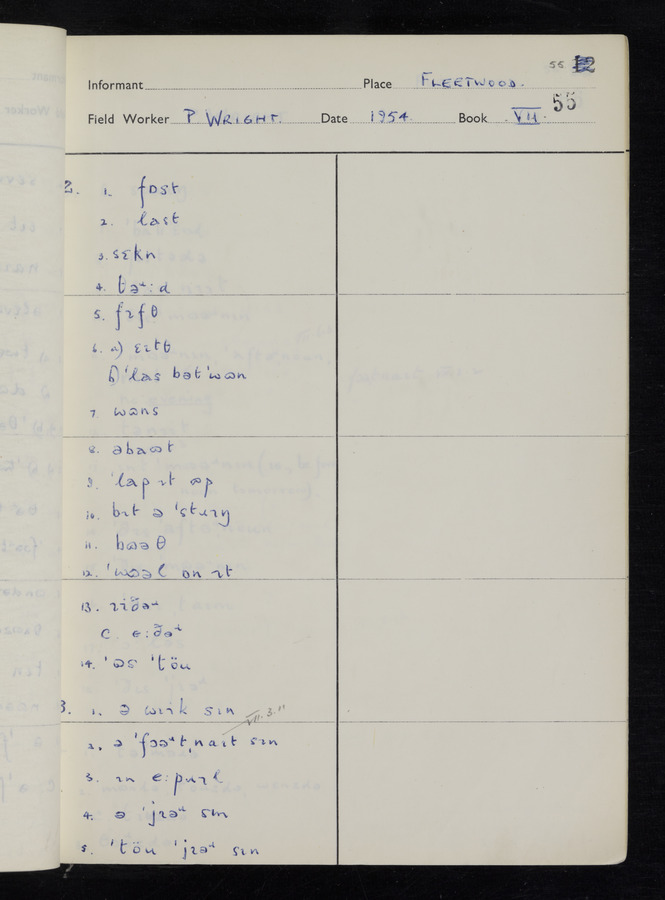 55 12
Informant Place FLEETWOOD.
55
Field Worker P WRIGHT. Date 1954. Book VII.
2. 1. fɒst
2. last
3. sɛkn
4. θəʴ:d
5. fɪfθ
6. a) ɛɪtθ
b) ˈlas bət ˈwɷn
7. wɷns
8. əbaɷt
9. ˈlap ɪt ɷp
10. bɪt ə ˈstɹɪŋ
11. bɷəθ
12. ˈwɷəl ɒn ɪt
13. ɹiðəʴ
C. e:ðəʴ
14. ˈɷs ˈtöu
3. 1. ə wik sɪn
VII.3.11
2. ə ˈfɔəʴtˌnaɪt sɪn
3. ɪn e:pɹɪl
4. ə ˈjɪəʴ sɪn
5. ˈtöu ˈjɪəʴ sɪn